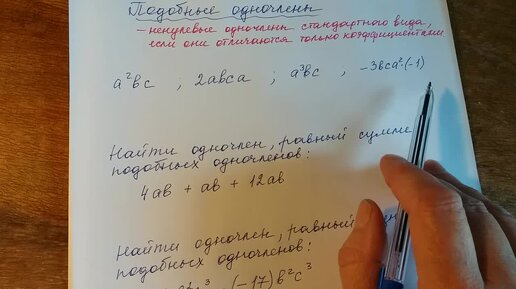 Подобные одночлены
– ненулевые одночлены стандартного вида,
если они отличаются только коэффициентами.
a²bc , 2abca ; a³bc , –3bca²·(–1)
Найти одночлен, равный сумме
подобных одночленов:
4ab + ab + 12ab
Найти одночлен, равный
подобных одночленов:
(–17)b²c³